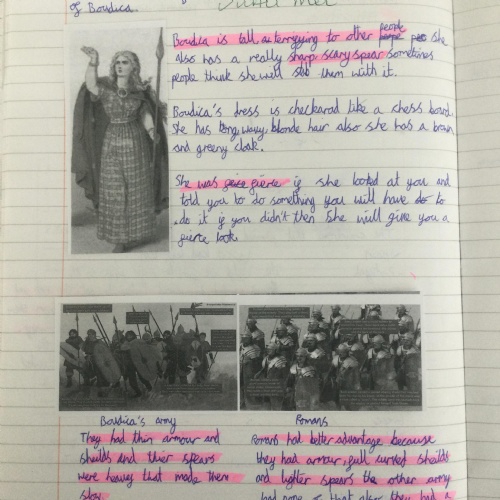 of Boudica.
Boudica is tall a terrifying to other people
also has a really sharp scary spear sometimes she
people think she will stab them with it.
Boudica's dress is checkarad like a chess board.
She has long, wavy, blonde hair also she has a brown
and greeny cloak.
She was fierce if she looked at you and
told you to do something you will have to
do it if you didn't then she will give you a
fierce look.
Boudica's army
They had thin armour and
sheilds and thier spears
were heavey that made them
slow
Romans
Romans had better advantage because
they had armour, full curved sheilds
and lighter spears the other army
had none of that also they had a